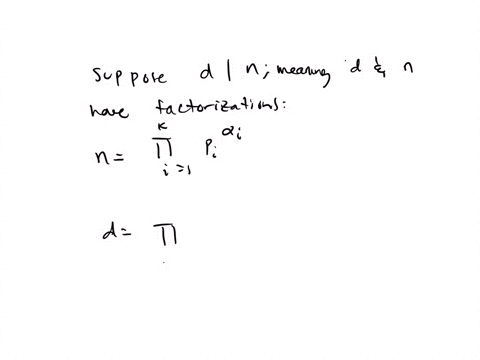 suppose d | n; meaning d & n
have factorizations:
n = ∏_{i=1}^{k} p_i^{α_i}
d = ∏